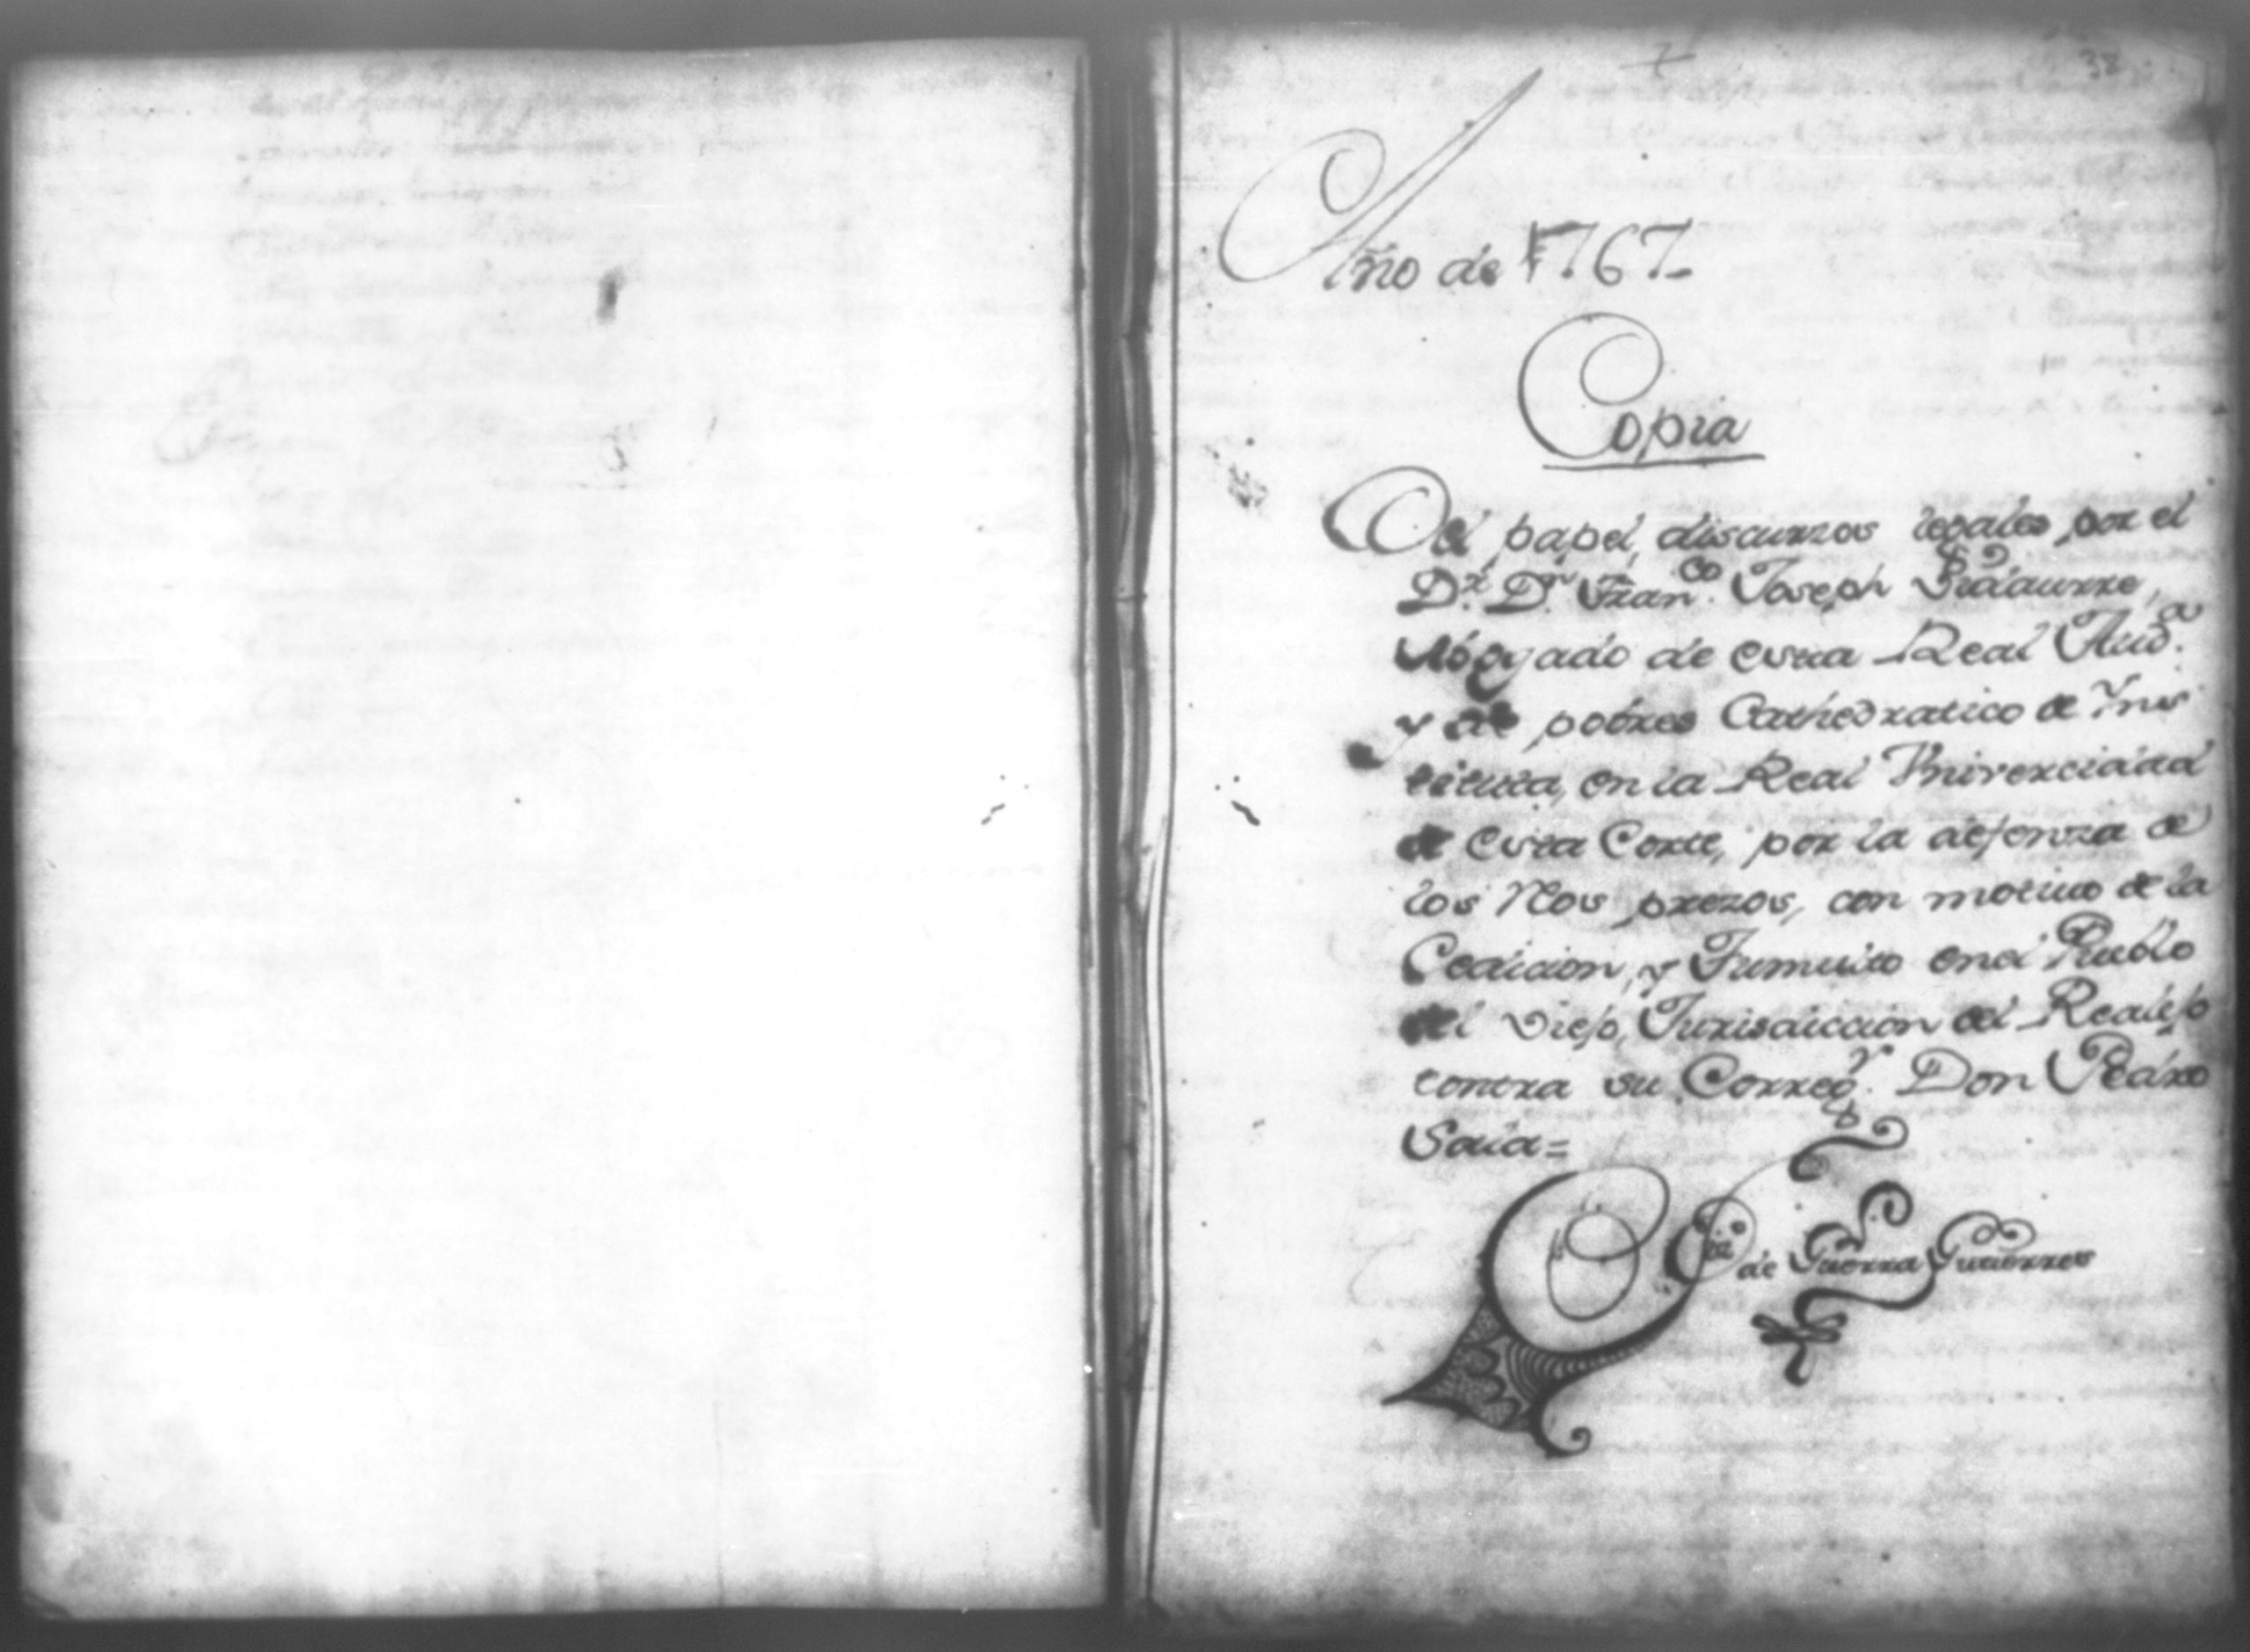 38
Año de 1767
Copia
Del papel, discurzos legales por el
Dr. Dn. Franco. Joseph
Abogado de esta Real Auda.
y de pobres Cathedratico de Yns
tituta, en la Real Vniverciadad
de esta Corte, por la defenza de
los Reos prezos, con motiuo de la
Cedicion, y Tumulto en el Pueblo
del Viejo, Jurisdiccion del Realejo
contra su Corregr. Don Pedro
=
de Guerra Gutierres